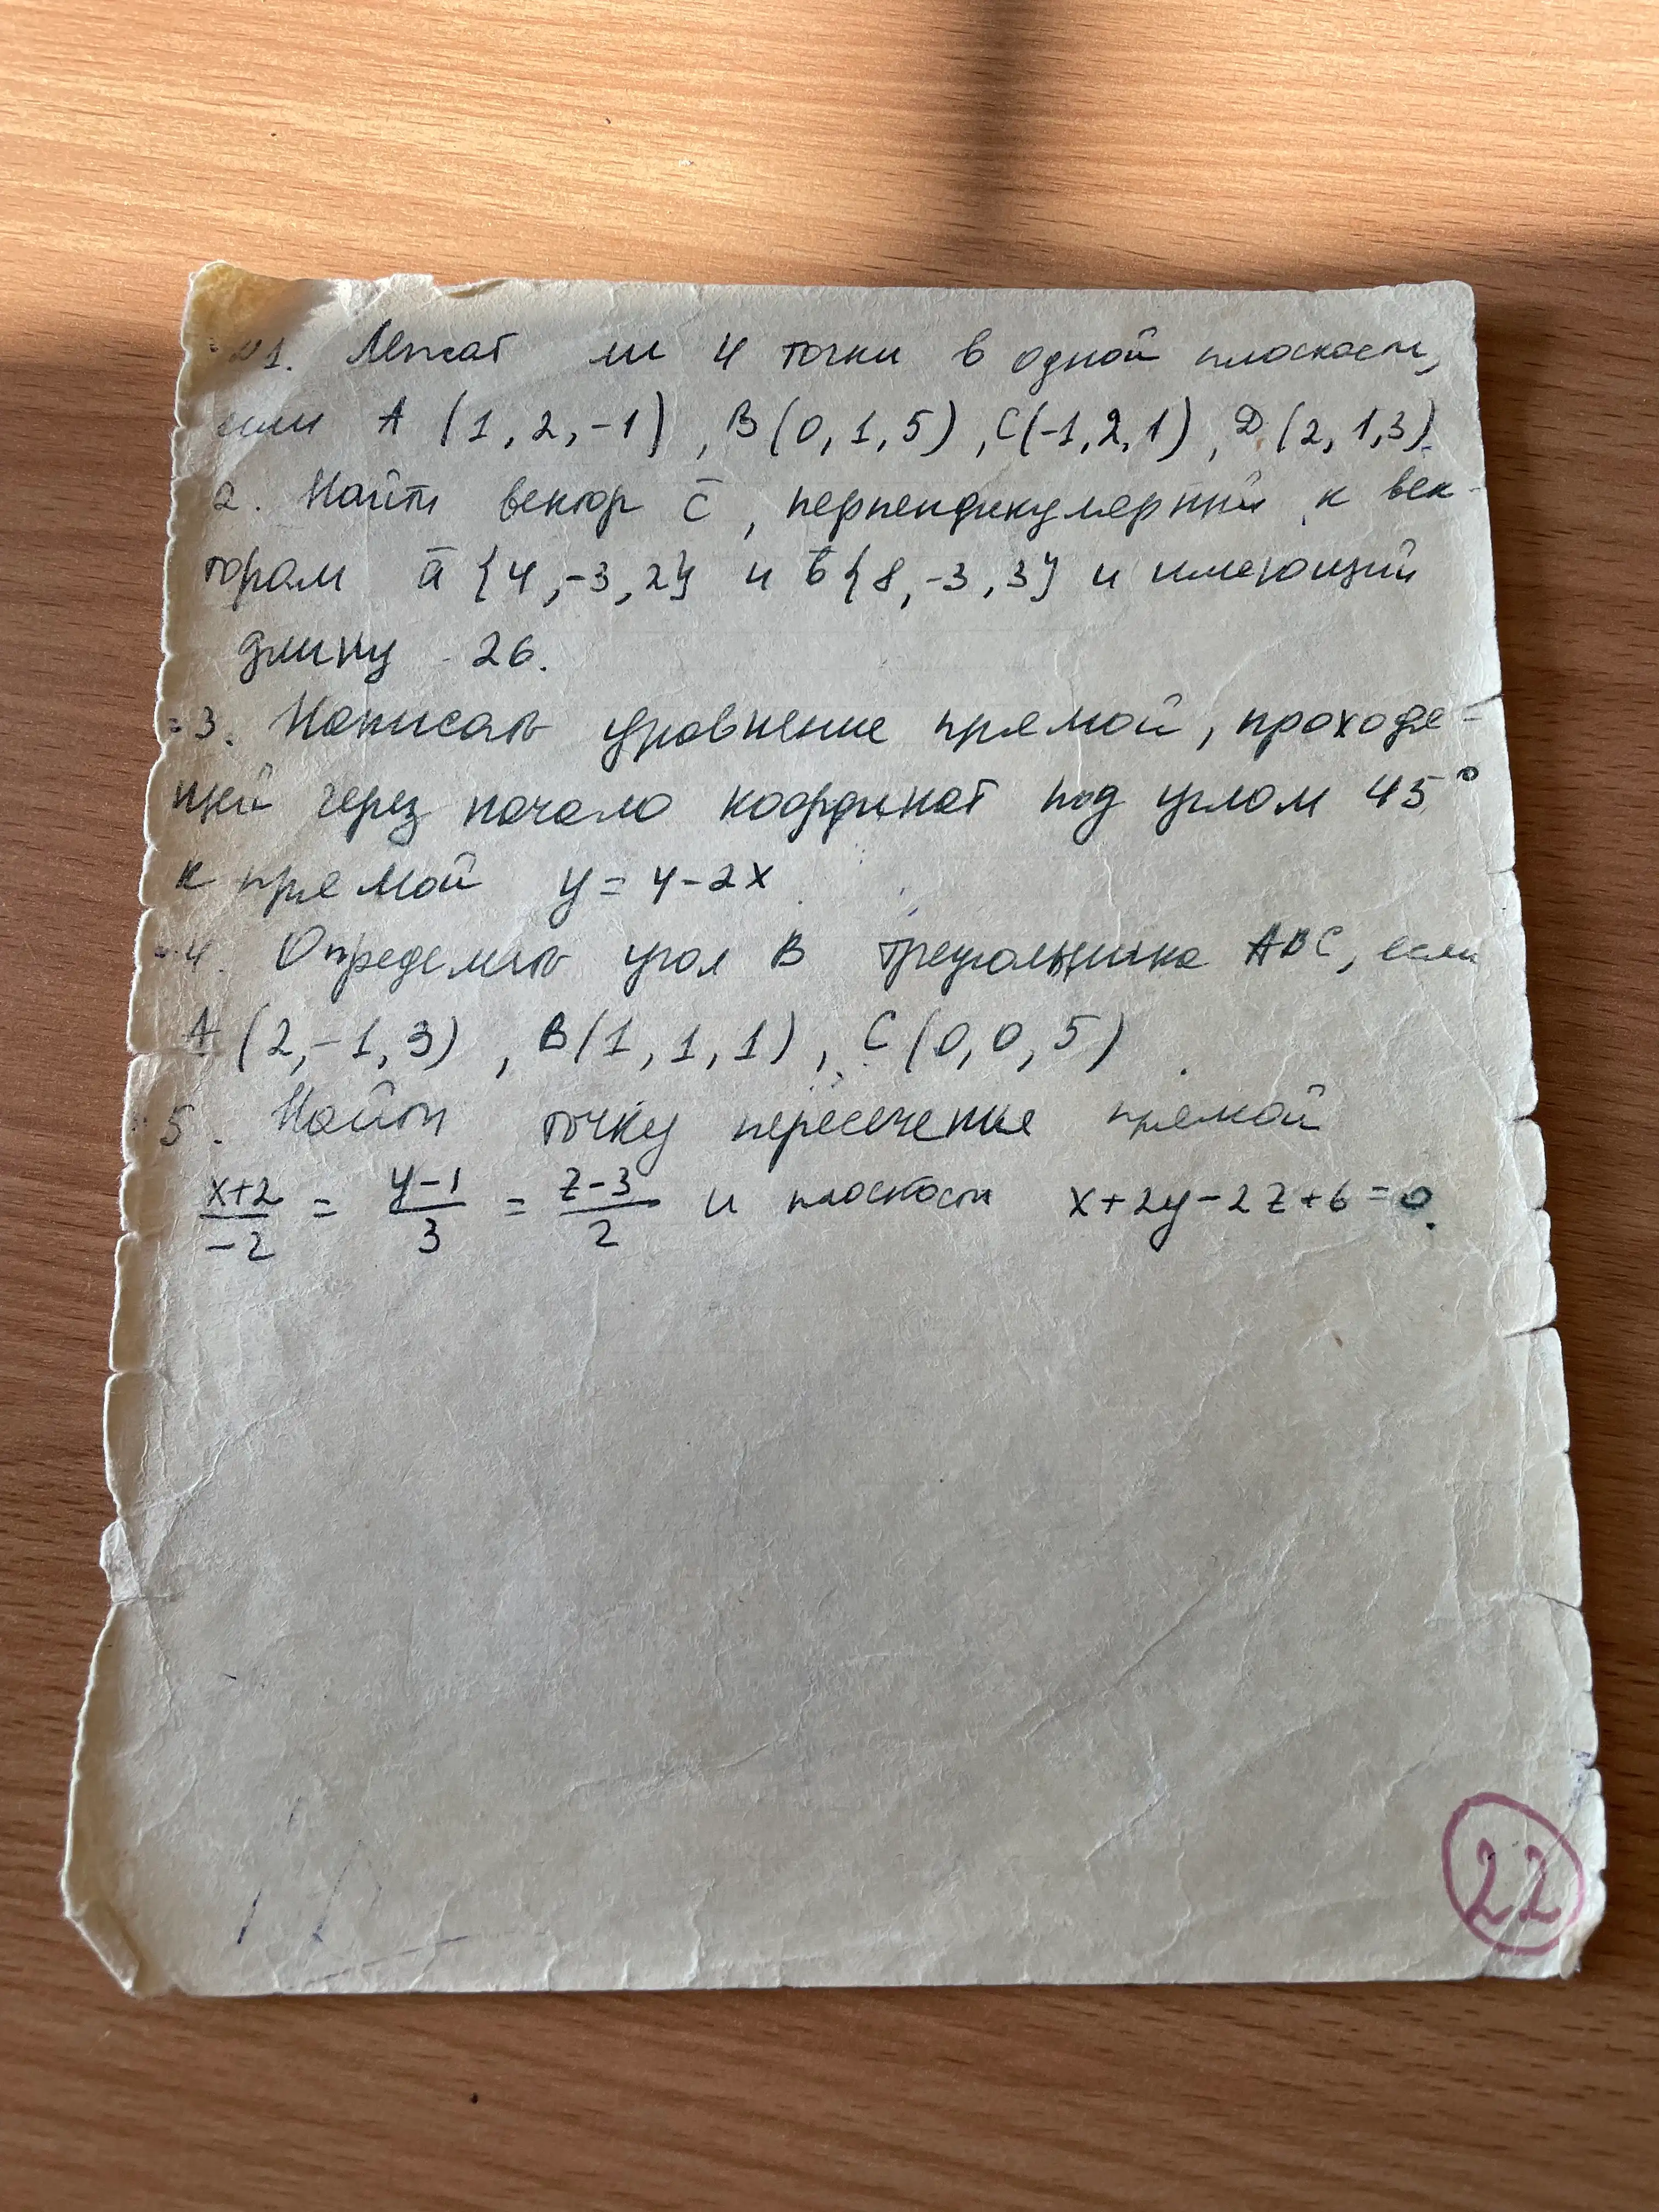 №1. Лежат ли 4 точки в одной плоскости,
если A (1, 2, -1), B (0, 1, 5), C(-1, 2, 1), D (2, 1, 3).
2. Найти вектор c̄, перпендикулярный к век-
торам ā {4, -3, 2} и b̄ {8, -3, 3} и имеющий
длину 26.
3. Написать уравнение прямой, проходя-
щей через начало координат под углом 45°
к прямой y = 4-2x.
4. Определить угол B треугольника ABC, если
A (2, -1, 3), B (1, 1, 1), C (0, 0, 5).
5. Найти точку пересечения прямой
x+2/-2 = y-1/3 = z-3/2 и плоскости x+2y-2z+6=0.
22